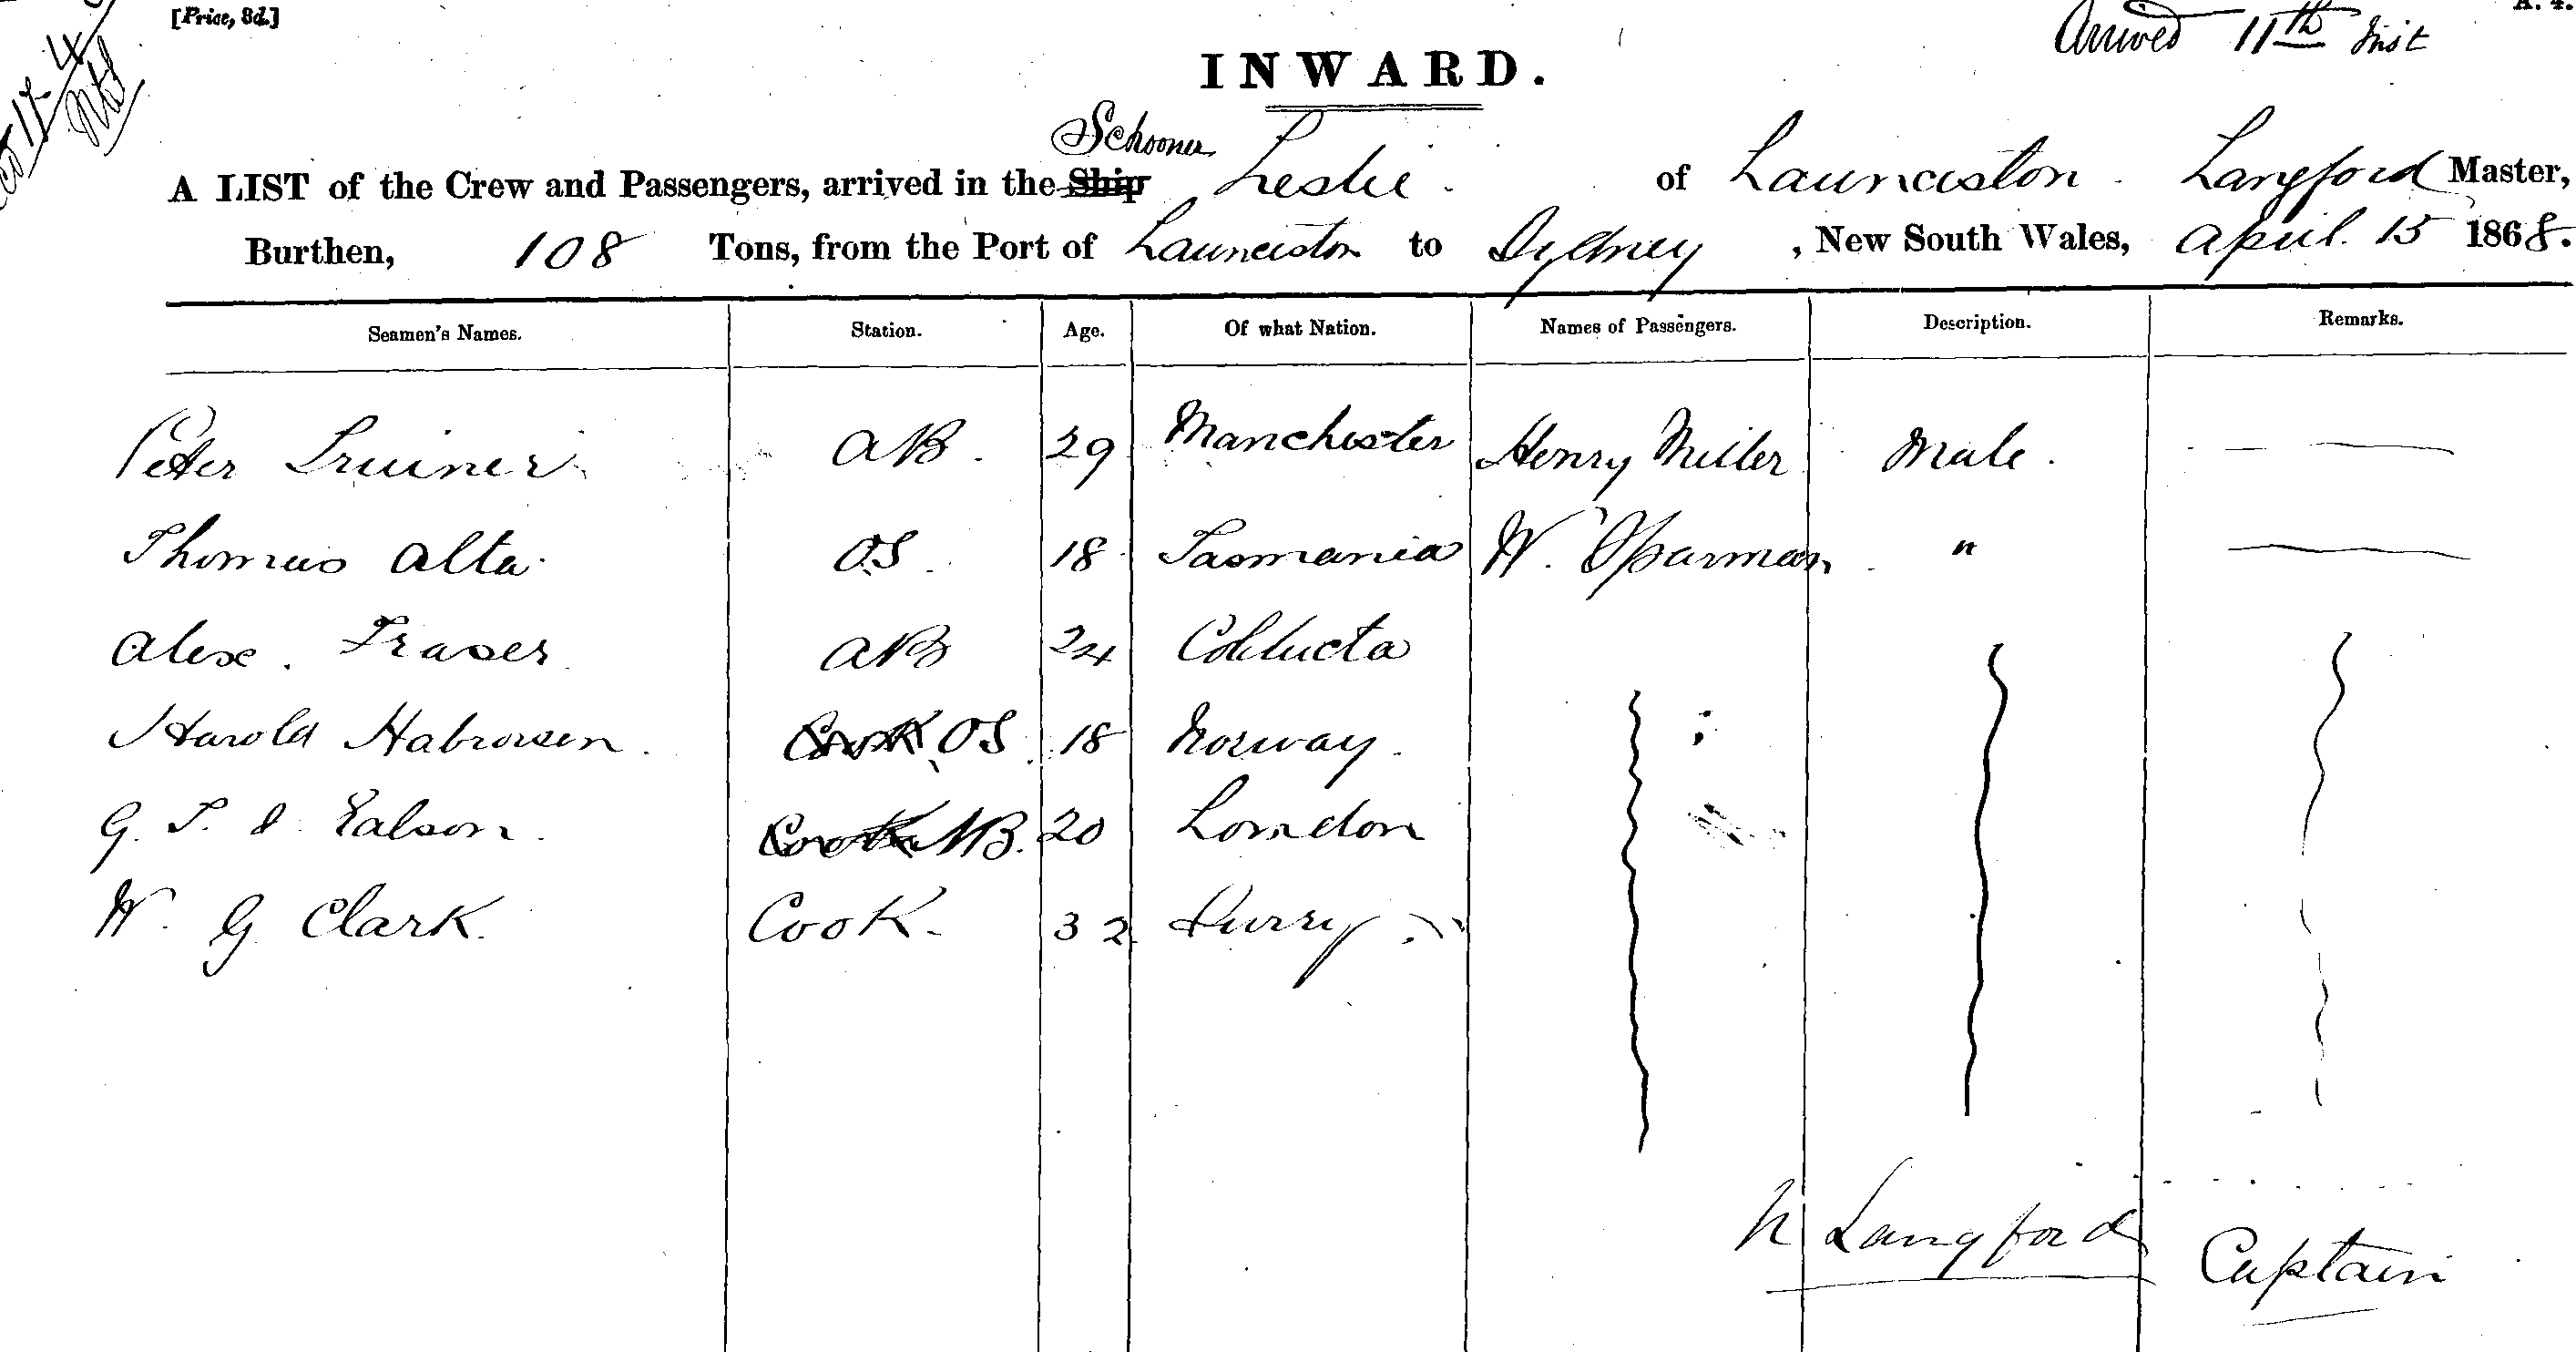 [Price, 8d.]
Arrived 11th Inst
INWARD.
Schooner
A LIST of the Crew and Passengers, arrived in the Ship Leslie of Launceston Langford Master,
Burthen, 108 Tons, from the Port of Launceston to Sydney, New South Wales, April 15 1868.
Seamen's Names. Station. Age. Of what Nation. Names of Passengers. Description. Remarks.
Peter AB. 29 Manchester Henry Miller Male.
Thomas Alta OS. 18 Tasmania W. Sparman "
Alex. Fraser AB 24
Harold Cook OS 18 Norway.
G. T. Cook AB. 20 London
W. G. Clark. Cook. 32
Langford
Captain